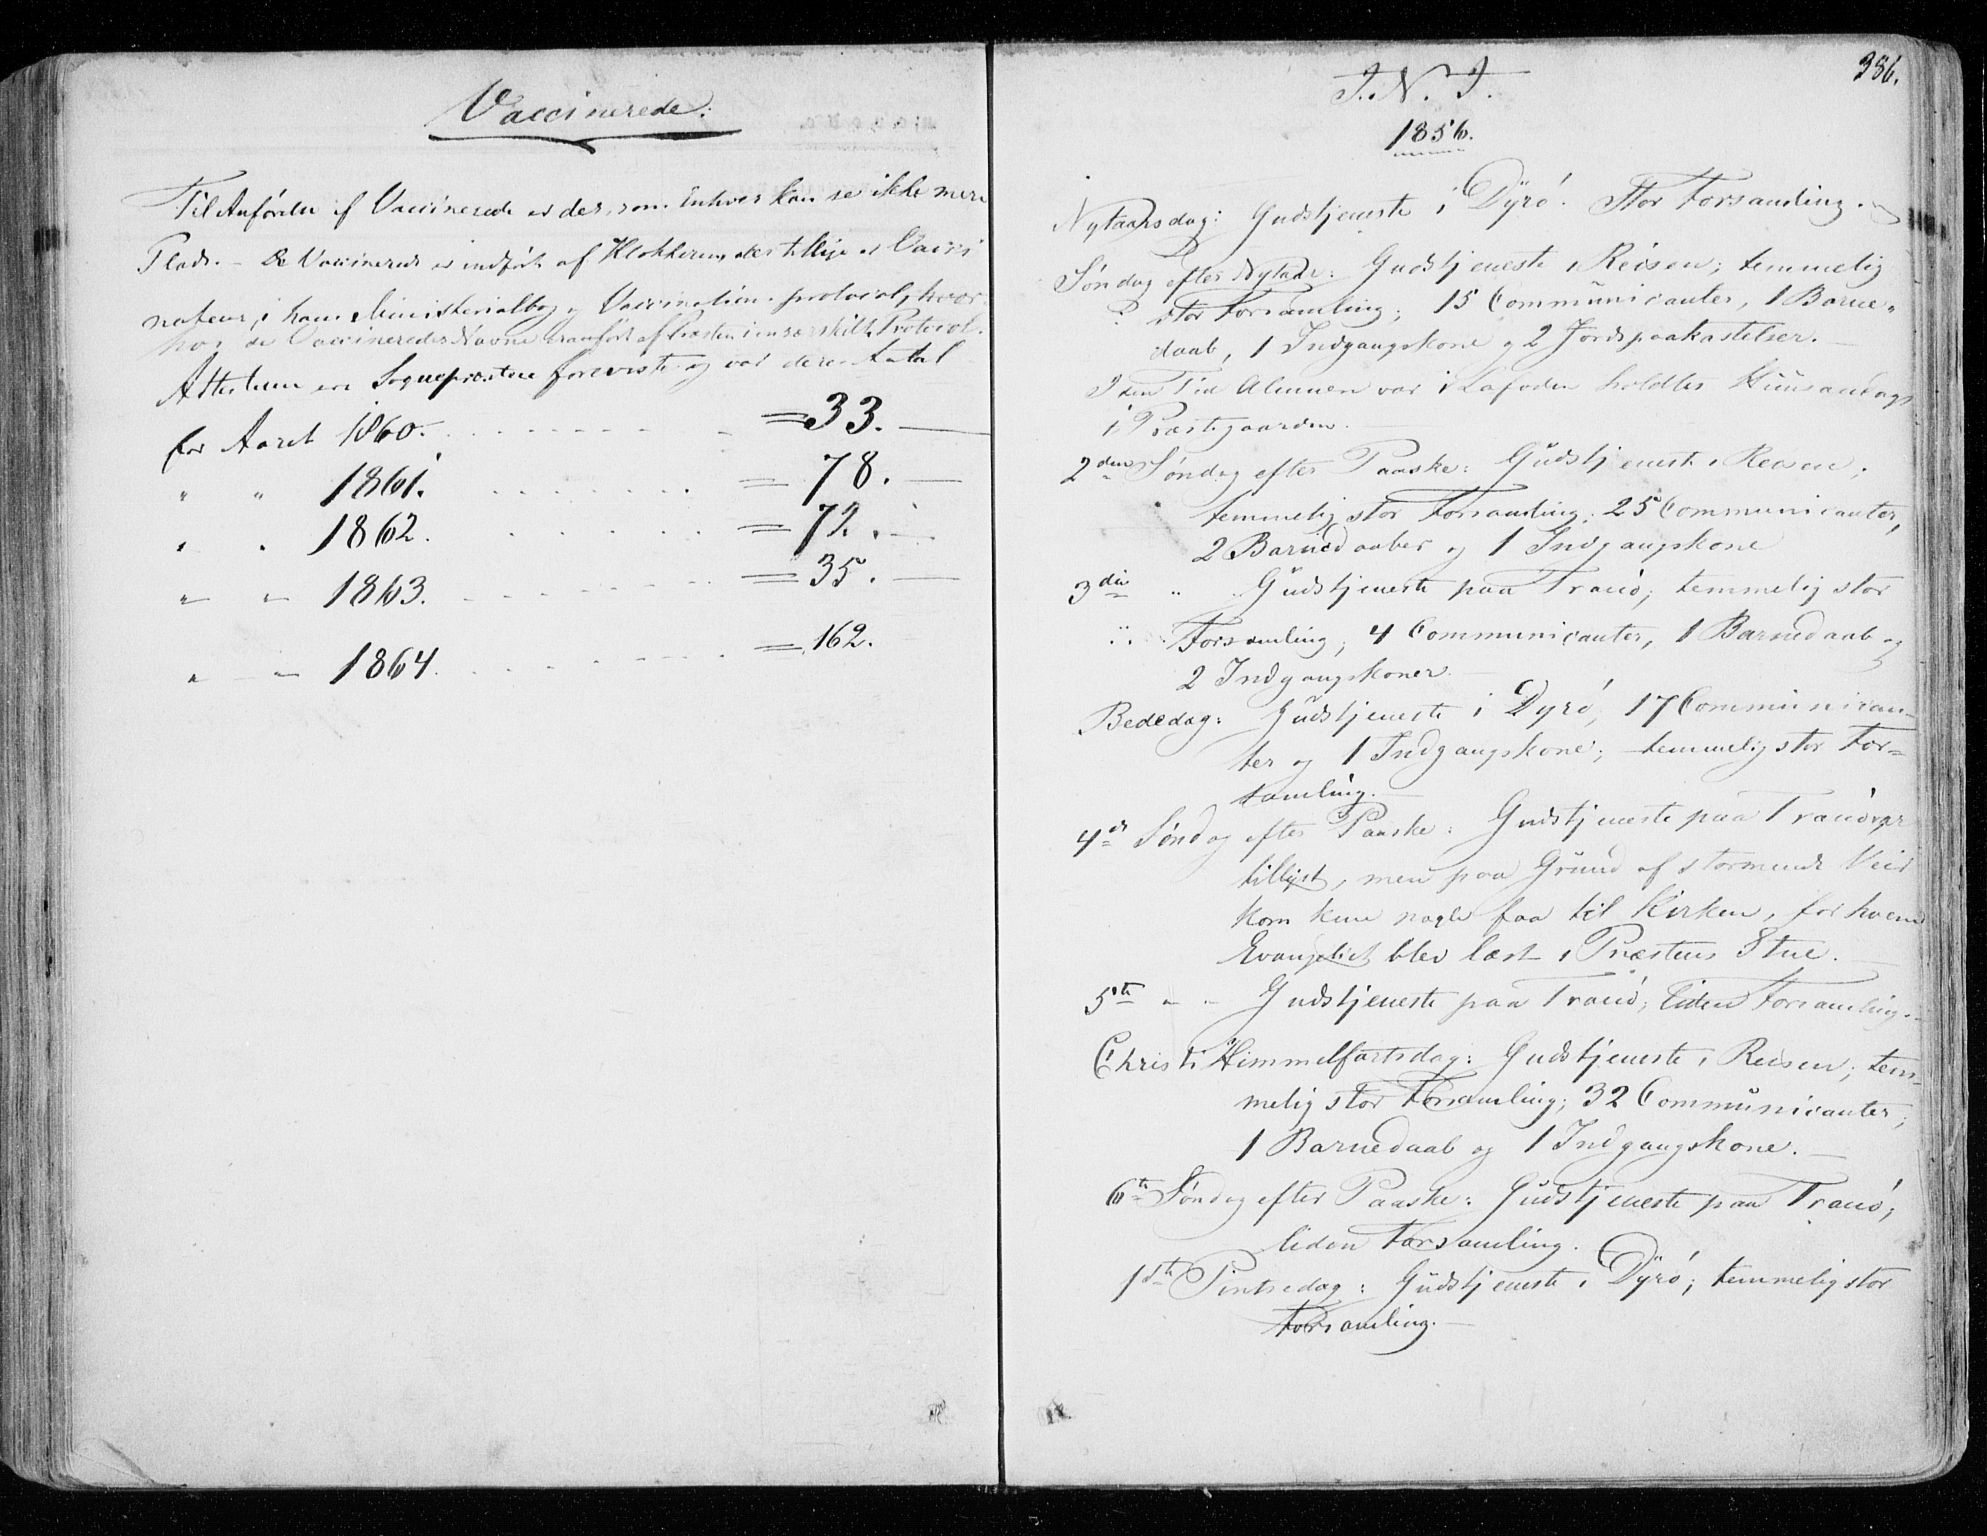 Vaccinerede:
Til Anførelse af Vaccinerede er der, som Enhver kan se ikke mere
Plads. – De Vaccinerede er indført af Klokkeren, der tillige er Vacci-
nateur, i hans Ministerialbog og Vaccinations-protocol, hvor-
hos de Vaccineredes Navne af Præsten i en særskilt Protocol.
Attesterne ere Sognepræsten foreviste og var deres Antal
for Aaret 1860. = 33. –
" " 1861. = 78. –
" " 1862. = 72. –
" " 1863. = 35. –
" " 1864. = 162.
386.
I. N. I.
1856.
Nytaarsdag: Gudstjeneste i Dyrö. Stor Forsamling.
Søndag efter Nytaar: Gudstjeneste i Reisen; temmelig
stor Forsamling; 15 Communicanter, 1 Barne-
daab, 1 Indgangskone og 2 Jordspaakastelser. –
I den Tid Almuen var i Lofoden holdtes Huusandagt
i Præstegaarden. –
2den Søndag efter Paaske: Gudstjeneste i Reisen;
temmelig stor Forsamling; 25 Communicanter,
2 Barnedaaber og 1 Indgangskone
3die " Gudstjeneste paa Tranö; temmelig stor
Forsamling, 4 Communicanter, 1 Barnedaab og
2 Indgangskoner. –
Bededag: Gudstjeneste i Dyrö, 17 Communican-
ter og 1 Indgangskone; temmelig stor For-
samling. –
4de Søndag efter Paaske: Gudstjeneste paa Tranö var
tillyst, men paa Grund af stormende Veir
kom kun nogle faa til Kirken, for hvem
Evangeliet blev læst i Præstens Stue. –
5te " " Gudstjeneste paa Tranö; liden Forsamling. –
Christi Himmelfartsdag: Gudstjeneste i Reisen; tem-
melig stor Forsamling; 32 Communicanter;
1 Barnedaab og 1 Indgangskone. –
6te Søndag efter Paaske: Gudstjeneste paa Tranö;
liden Forsamling.
1ste Pintsedag: Gudstjeneste i Dyrö; temmelig stor
Forsamling. –